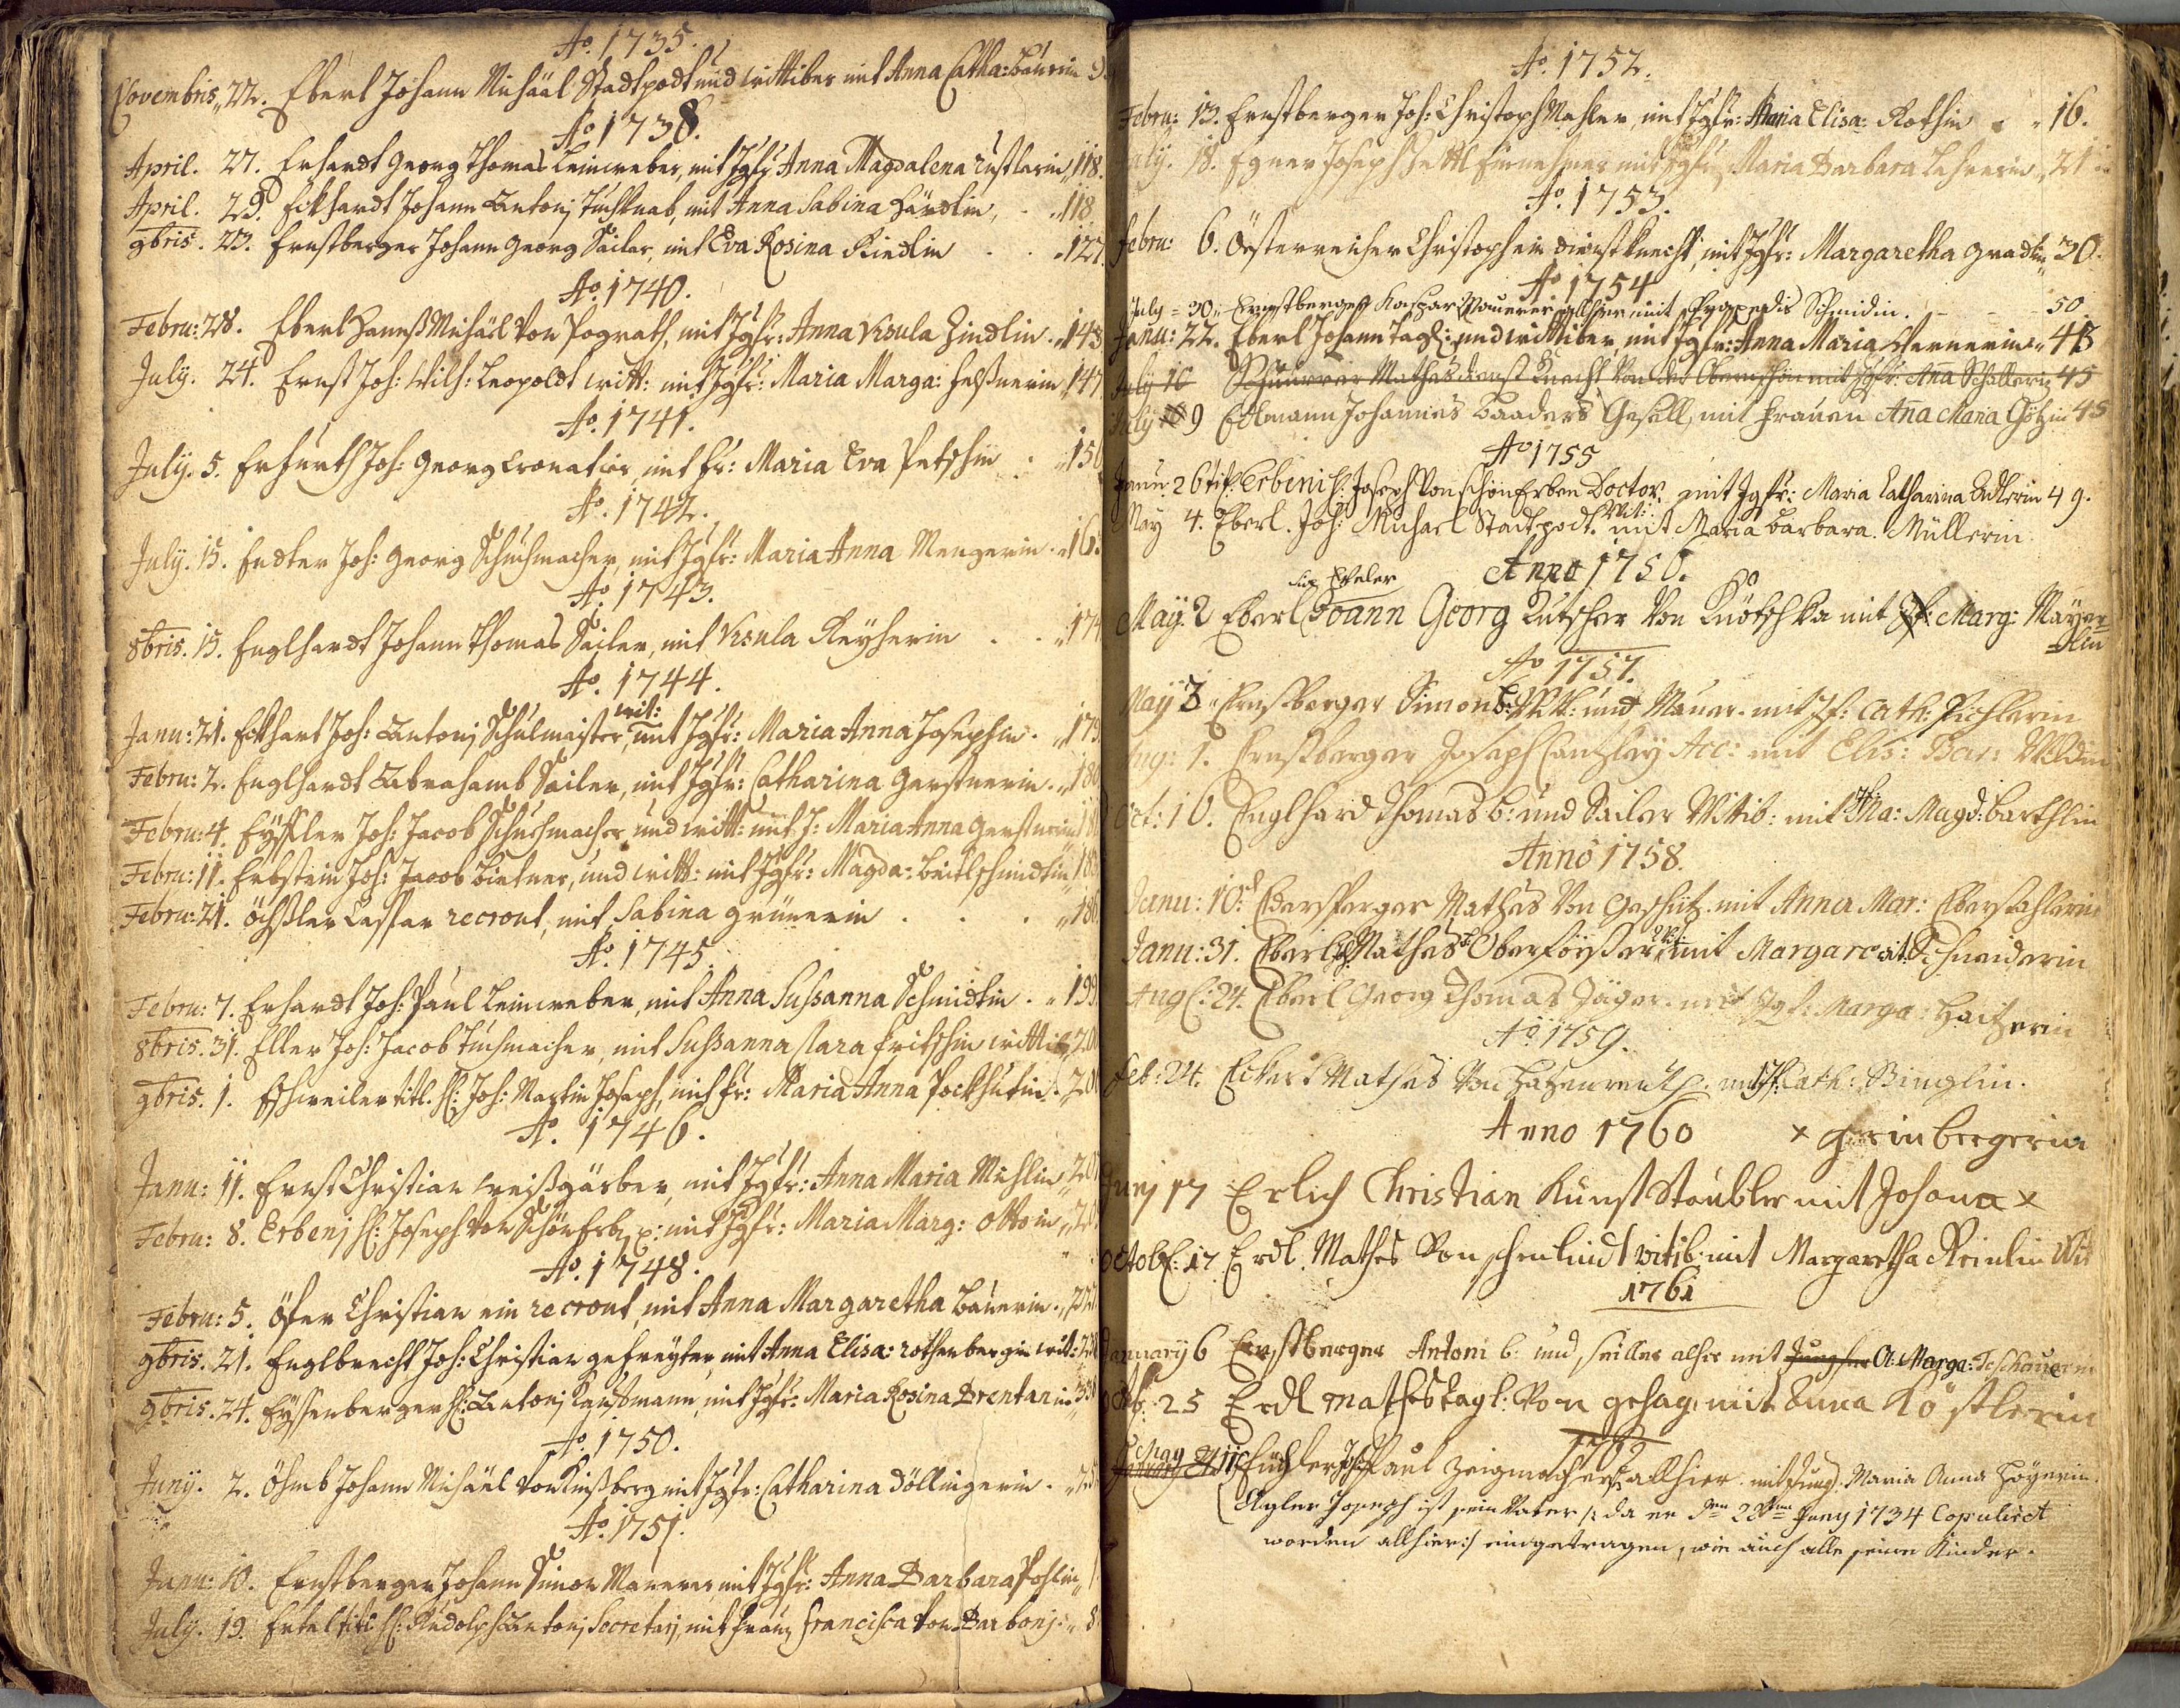 Ao. 1735.
Novembris. 22. Eberl Johann Michääl Stadtpodt und wittiber mit Anna Catha: Baurin
Ao 1738.
April. 27. Erhardt Georg Thomas Leinweber, mit Jgfr Anna Magdalena rustlerin, 118.
April. 29. Eckhardt Johann Antonj Tuchknab, mit Anna Sabina Händlin, . . 118
9bris. 23. Ernstberger Johann Georg Sailer, mit Eva Rosina Riedlin . . . 127.
Ao. 1740.
Febru: 28. Eberl Hannß Michäel von Pograth, mit Jgfr: Anna Ursula Zindlin. 143
July. 24. Ernst Joh: Wilh: Leopoldt witt: mit Jgfr: Maria Marga: 147
Ao. 1741.
July. 5. Erfurth Joh: Georg mit Fr: Maria Eva Petzhin . 156
Ao. 1742.
July. 15. Endter Joh: Georg Schuhmacher, mit Jgfr: Maria Anna Mengerin . 16
Ao. 1743.
8bris. 15. Englhardt Johann Thomas Sailer, mit Ursula Reyherin . . 174
Ao. 1744.
wit:
Janu: 21. Eckhart Joh: Antonj Schulmaister, mit Jgfr: Maria Anna Josephin. 179
Febru: 2. Englhardt Abrahamb Sailer, mit Jgfr: Catharina Gerstnerin. 180
Febru: 4. Joh: Jacob Schuhmacher und witt: mit J: Maria Anna Gerstnerin
Febru: 11. Erbstein Joh: Jacob und witt: mit Jgfr: Magda: 183
Febru: 21. Öchßler Casper recrout, mit Sabina Grünerin . . . 186
Ao. 1745.
Febru: 7. Erhardt Joh: Paul Leinweber, mit Anna Sussanna Schmidtin . 199
8bris. 31. Eller Joh: Jacob Tuchmacher, mit Sussanna Clara Fritschin wittib 20
9bris. 1. Eschweiler titl. H: Joh: Martin Joseph, mit Fr: Maria Anna Pockhutin. 20
Ao. 1746.
Janu: 11. Ernst Christian weißgärber, mit Jgfr: Anna Maria Michlin 20
Febru: 8. Erbenj H: Joseph von Schönfeld mit Jgfr: Maria Marg: Ottoin 20
Ao. 1748.
Febru: 5. Öfer Christian ein recrout, mit Anna Margaretha Bäuerin. 22
9bris. 21. Englbrecht Joh: Christian gefreyter, mit Anna Elisa: rothenbergin wit: 23
9bris. 24. Eyssenberger H: Antonj Kaufmann, mit Jgfr: Maria Rosina Brentanin
Ao. 1750.
Juny. 2. Öhmb Johann Michäel von Kinßberg mit Jgfr: Catharina Döllingerin . 25
Ao. 1751.
Janu: 10. Ernstberger Johann Simon Maurer, mit Jgfr: Anna Barbara Pohlin
July. 19. Ertel titl H: Rudolph Antonj Secretarj, mit Frauen Francisca von Barbonj. 8
Ao. 1752.
Febru: 13. Ernstberger Joh: Christoph Mahler, mit Jgfr: Maria Elisa: Rothin 16.
July. 18. Egner Joseph Einnehmer mit Jgfr: Maria Barbara Lehrerin 21
Ao. 1753.
Febru: 6. Österreicher Christoph ein dienstknecht, mit Jgfr: Margaretha Gradlin 30.
Ao 1754
July = 30 Ernstberger Kaspar Maurer allhier mit Praxedis Schmidin. - - - 50
Janu: 22. Eberl Johann Tagl: und wittiber, mit Jgfr: Anna Maria Wernerin 43
July 16 Mathes dienst Knecht Von der mit Jgfr: Ana Schillerin 45
July 9 Edlmann Johannes Baaders Gesell, mit Frauen Ana Maria Götzin 45
Ao 1755
Janu. 26 tit: Erbeni H: Joseph Von Schönerben Doctor. mit Jgfr: Maria Catharina Adlerin 49.
May 4. Eberl. Joh: Michael Stadtpodt. Wit: mit Maria Barbara. Müllerin
Anno 1756.
May 2 Eberl Joann Georg Kutscher Von mit Jf: Marg: Mayer=
=lin
Ao 1757.
May 3. Ernstberger Simon b: Witt: und Maurer. mit Jf: Cath: Pichlerin
Aug: 1. Ernstberger Joseph Cantzley Acc: mit Elis: Bar: Wildin
Oct: 10. Englhard Thomas b: und Sailer Witib: mit Ana: Magd: Barthlin
Anno 1758.
Janu: 10. Edersperger Mathes Von Geschitz mit Anna Mar: Eberstahlerin
Janu: 31. Eberl Mathes Oberforster, mit Margareth Schneiderin
Aug: 24. Eberl Georg Thomas Jäger mit Jgf: Marga: Haitzerin
Ao 1759.
Feb: 24. Eckert Mathes Von Hatzenreuth. mit Jf: Cath: Binglin.
Anno 1760 x Greinbergerin
Junj 17 Erlich Christian Kunst Staubler mit Johana x
Octob: 17 Erdl. Mathes Von Schenlindt witib: mit Margaretha Reinlin Wit
1761
January 6 Ernstberger Antoni b: und Seiller alhir mit Jungfer A: Marga: Teschauerin
Octb: 25 Erdl Mathes Tagl: Von Gehag, mit Anna Köstlerin
1762
May 11 Joh: Paul Zeigmacher allhier. mit Jungf: Maria Anna Höyerin.
Eigler Joseph ist sein Vater /: da er den 28ten Juny 1734 Copuliret
worden allhier :/ eingetragen, wie auch alle seine Kinder.